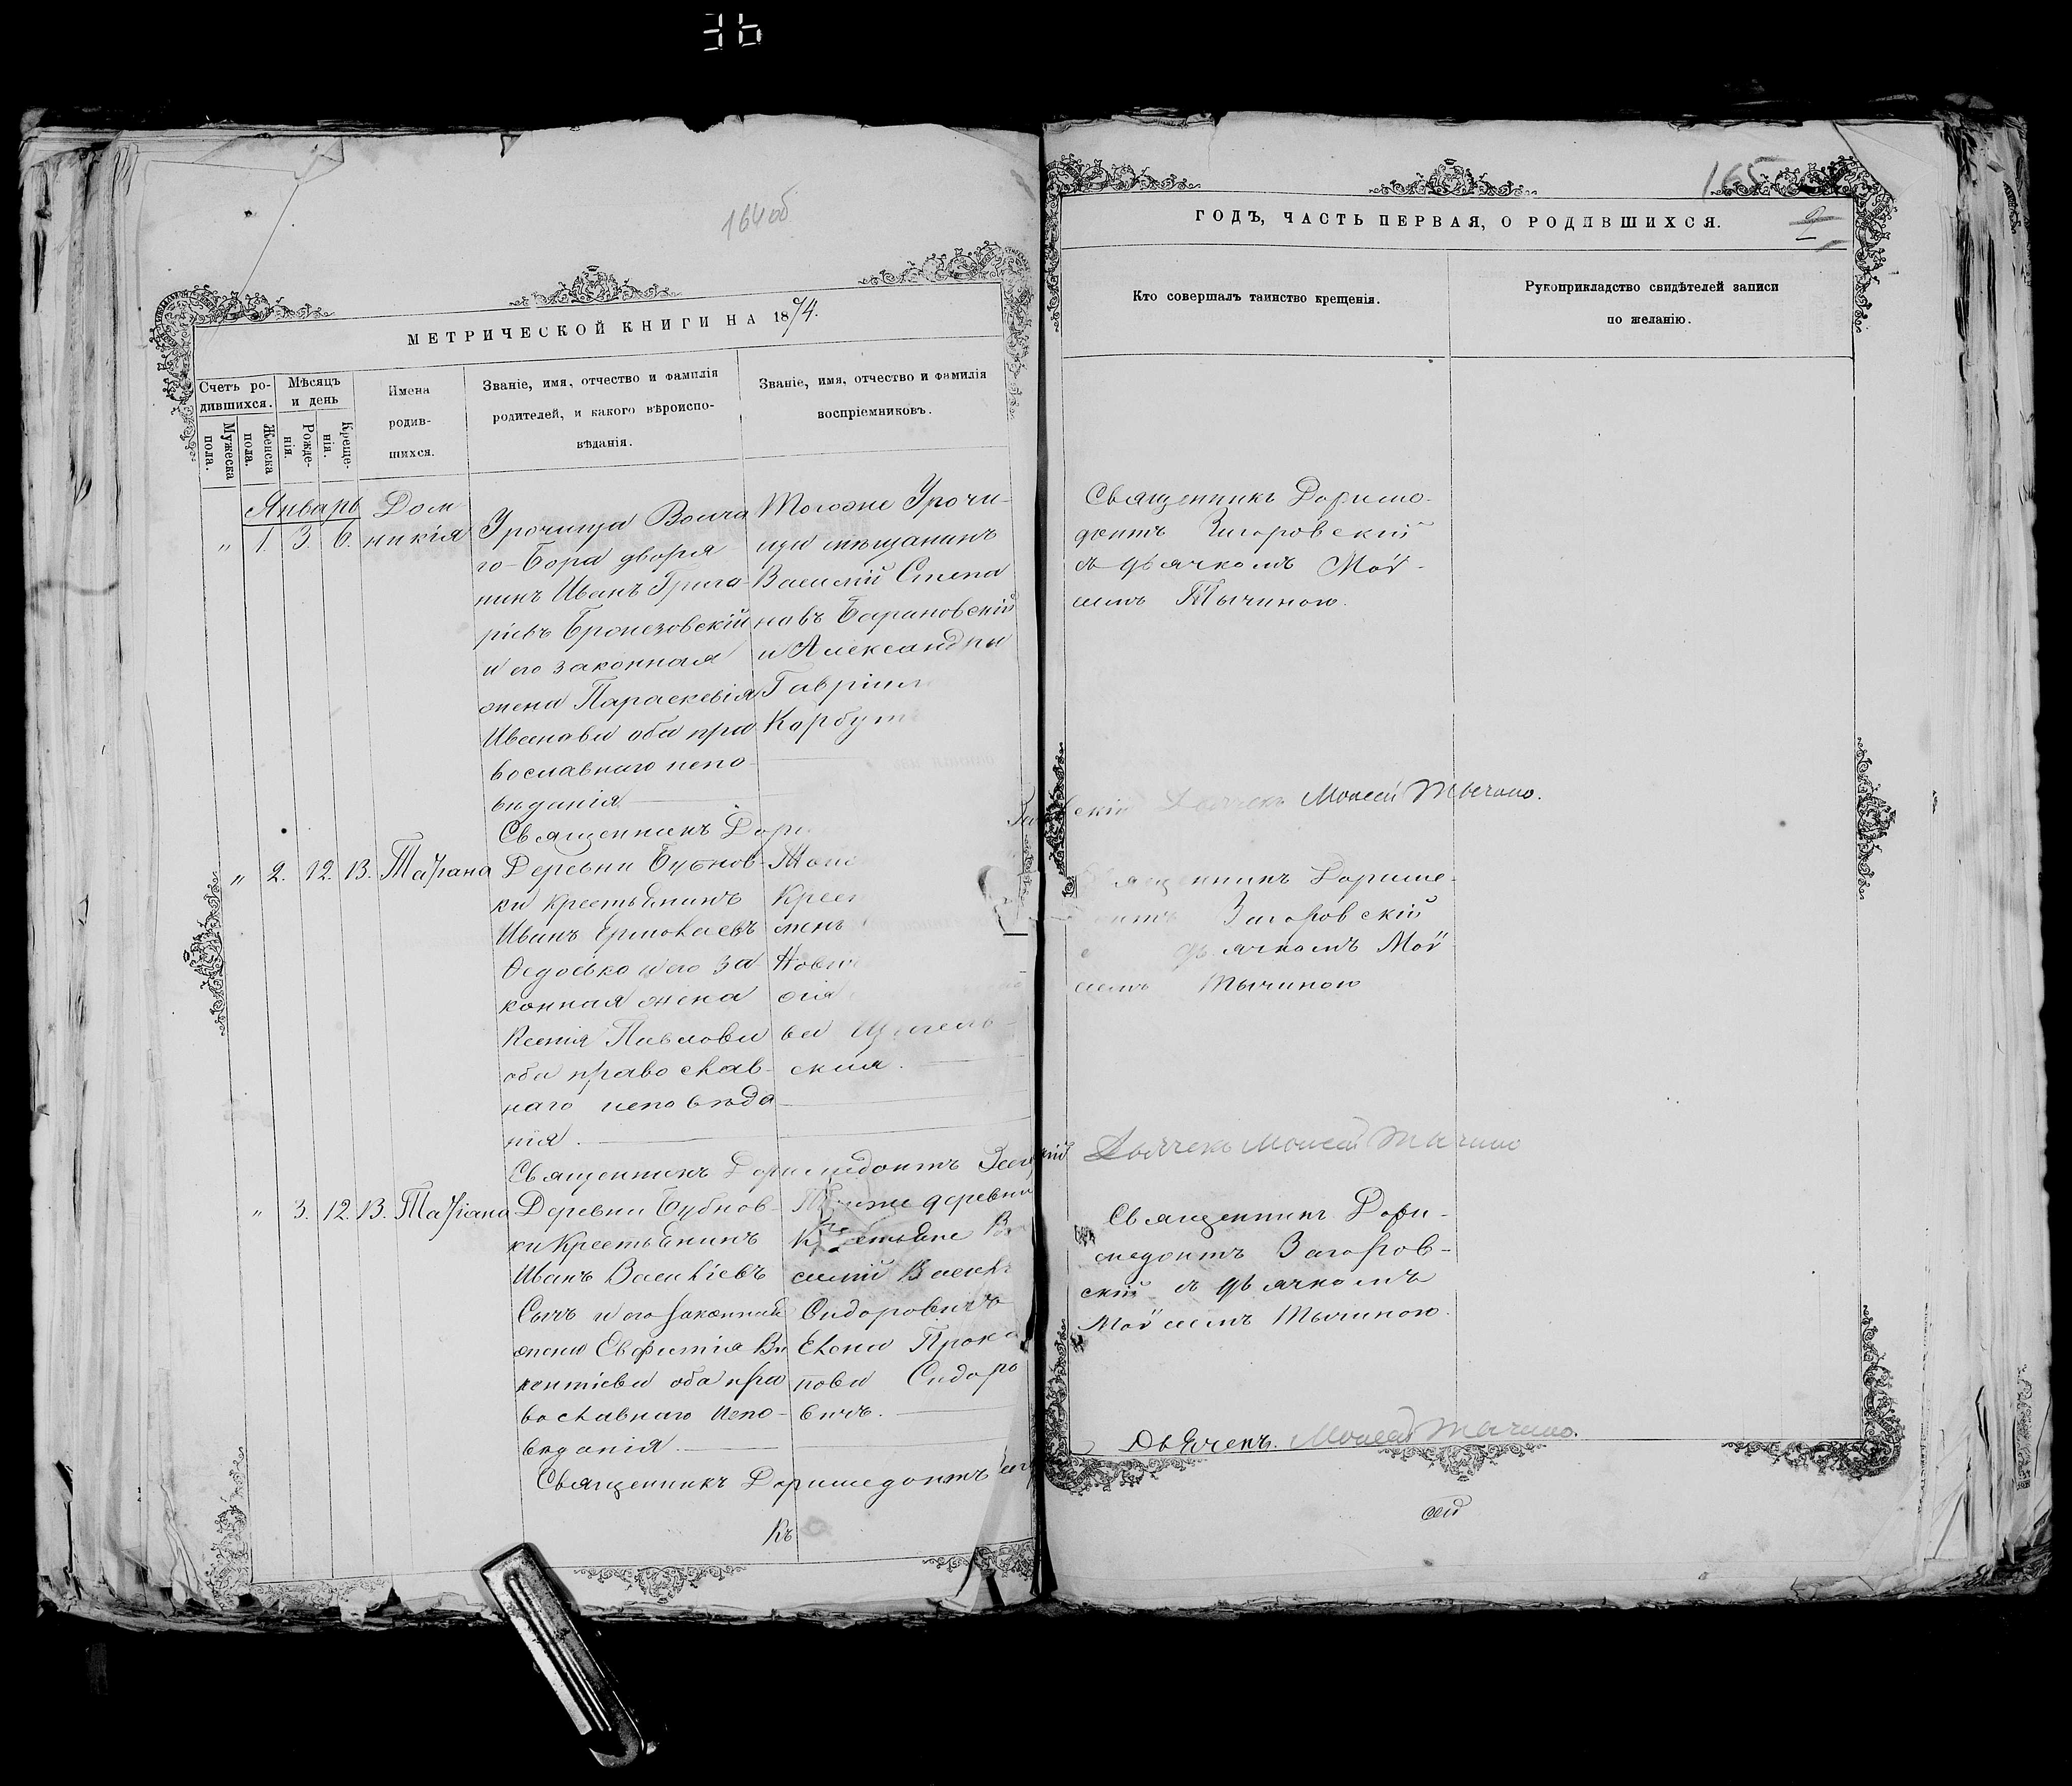 36
164об
МЕТРИЧЕСКОЙ КНИГИ НА 1874.
Счетъ ро-
дившихся.
Мужеска
пола.
Женска
пола.
Мѣсяцъ
и день
Рожде-
нія.
Креще-
нія.
Имена
родив-
шихся.
Званіе, имя, отчество и фамилія
родителей, и какого вѣроиспо-
вѣданія.
Званіе, имя, отчество и фамилія
воспріемниковъ.
Январь
" 1. 3. 6.
Дом
никія
Урочища Волча
го-Бора дворя
нинъ Иванъ Григо-
ріевъ Бронезовскій
и его законная
жена Параскевія
Иванова оба пра
вославнаго испо-
вѣданія
Тогоже Урочи-
ща мѣщанинъ
Василій Степа
новъ Барановскій
и Александра
Гавріил
Корбут
Священникъ Дори
" 2. 12. 13. Татіана
Деревни Бубнов-
ки крестьянинъ
Иванъ Ермолаевъ
Ѳедосько и его за
конная жена
Ксенія Павлова
оба православ-
наго исповѣда
нія.
Крест
ва
ская.
Священникъ Доримедонтъ
" 3. 12. 13. Татіана
Деревни Бубнов-
ки Крестьянинъ
Иванъ Васильевъ
Сычъ и его законная
жена Евфимія Ви
кентіева оба пра
вославнаго испо-
вѣданія.
Тоиже деревни
Крестьяне Ва
силій Василь
Сидоровичъ
Елена Проко
пова Сидоро
вичъ.
Священникъ Доримедонтъ
Къ
165
ГОДЪ, ЧАСТЬ ПЕРВАЯ, О РОДИВШИХСЯ.
2
Кто совершалъ таинство крещенія.
Рукоприкладство свидѣтелей записи
по желанію.
Священникъ Дориме-
донтъ Загоровскій
съ дьячкомъ Мой-
сеемъ Тычиною.
Дьячекъ Моисей Тычино.
Священникъ Дориме-
донтъ Загоровскій
съ дьячкомъ Мой
сеемъ Тычиною
Дьячекъ Моисей Тычино
Священникъ Дори-
медонтъ Загоров-
скій съ дьячкомъ
Мойсеемъ Тычиною.
Дьячекъ. Моисей Тычино.
сей